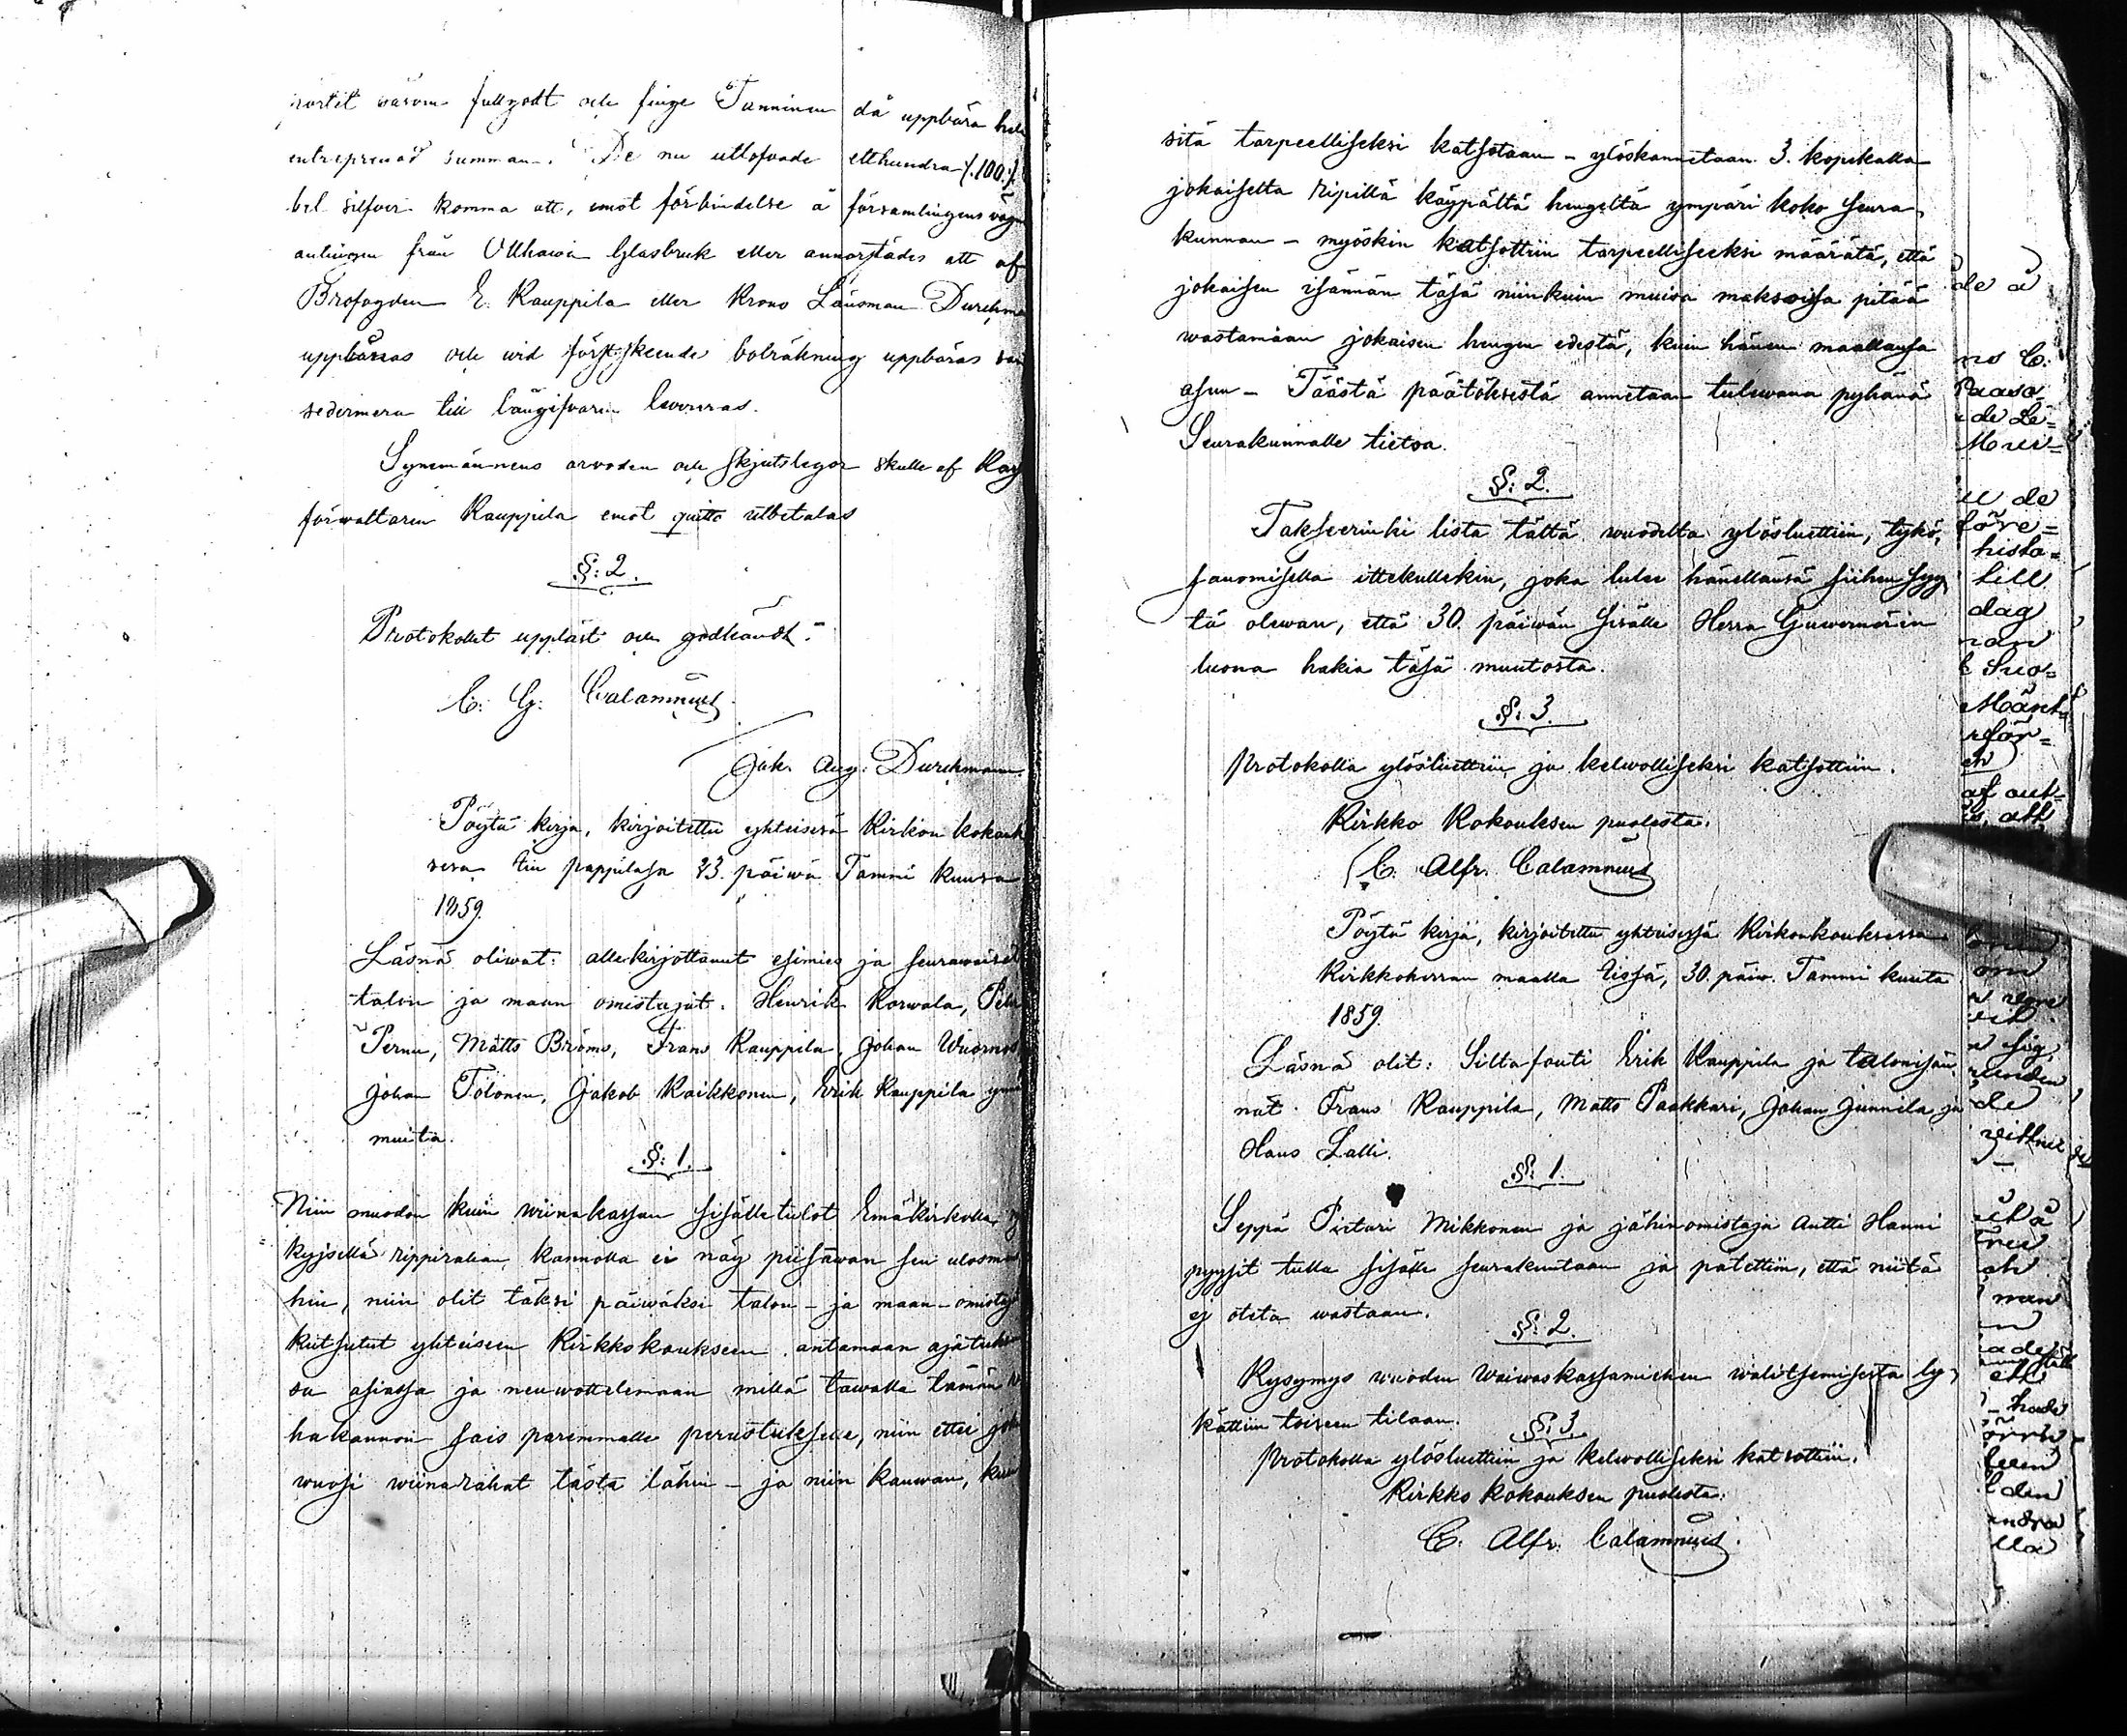 såsom fullgodt och finge Tanninen då uppbära hela
entreprenad summan. De nu utlofvade etthundra (.100.)
bel silfver komma att, emot förbindelse å församlingens vägn
antingen från Olkawa Glasbruk eller annorstädes att af
Brofogden E. Kauppila eller Krono Länsman Durchman
uppbäras och vid först skeende bolräkning uppbäras
sedermera till levereras.
Synemännens arvoden och skjutslegor skulle af Kas
förvaltaren Kauppila emot quitto utbetalas
§: 2.
Protokollet uppläst och godkändt.
C: G: Calamnius
Joh. Aug: Durchman.
Pöytä kirja, kirjoitettu yhteisesä Kirkon kokouk
sesa Iin pappilasa 23. päiwä Tammi kuusa
1859.
Läsnä oliwat: allekirjottanut esimies ja seurawaiset
talon ja maan omistajat. Henrik Korwala, Pehr
Pernu, Matts Bröms, Frans Kauppila, Johan Wuornos
Johan Tolonen, Jakob Kaikkonen, Erik Kauppila ynnä
muita.
§: 1.
Niin muodon kuin wiinakassan sisälletulot Emäkirkolla
kyjsellä rippirahan kannolla ei näy piisawan sen ulosmenoi
hin, niin olit täksi päiwäksi talon - ja maan - omistaj
kutsutut yhteiseen Kirkkokoukseen antamaan ajätuk
sa asiassa ja neuwottelemaan millä tawalla tämän
hakannon sais paremmalle perustukselle, niin ettei joka
wuosi wiinarahat tästa lähin - ja niin kauwan, kuin
sitä tarpeelliseksi katsotaan - ylöskannetaan 3. kopekalla
jokaiselta ripillä käypältä hengeltä ympäri koko seura
kunnan - myöskin katsottiin tarpeelliseeksi määrätä, että
jokaisen isännän täsä niinkuin muisa maksoisa pitää
wastamaan jokaisen hengen edestä, kuin hänen maallansa
asuu - Täästä päätöksestä annetaan tulewana pyhänä
Seurakunnalle tietoa.
§: 2.
Takseerinki lista tältä wuodelta ylösluettiin, tykö,
sanomisella ittekullekin, joka lulee hänellänsä siihen syy
tä olewan, että 30. päiwän sisälle Herra Guwernörin
luona hakia täsä muutosta.
§: 3.
Protokolla ylösluettiin ja kelwolliseksi katsottiin.
Kirkko Kokouksen puolesta.
C. Alfr. Calamnius
Pöytä kirja, kirjoitettu yhteisessä Kirkonkouksessa
Kirkkoherran maalla Iissä, 30. päiw. Tammi kuuta
1859.
Läsnä olit: Silta fouti Erik Kauppila ja talonisän,
nät. Frans Kauppila, Matts Paakkari, Johan Junnila ja
Hans Lalli.
§: 1.
Seppä Pietari Mikkonen ja jähin omistaja Antti Hanni
pyysit tulla sisälle seurakuntaan ja pätettiin, että niitä
ej oteta wastaan.
§: 2.
Kysymys wuoden Waiwaskassamiehen walitsemisesta ly,
kättiin toiseen tilaan.
§: 3.
Protokolla ylösluettiin ja kelwolliseksi katsottiin.
Kirkko Kokouksen puolesta:
C. Alfr. Calamnius.